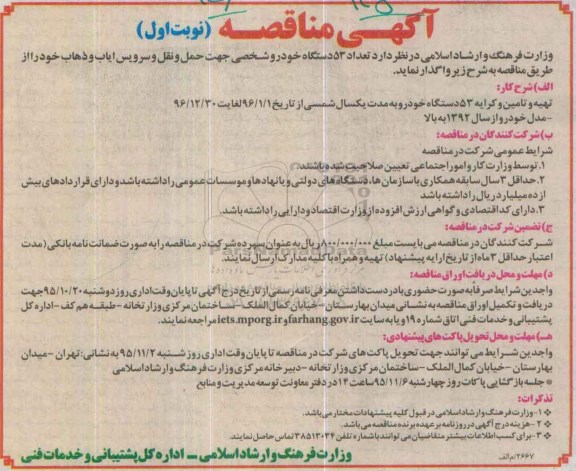 آگهی مناقصه (نوبت اول)
وزارت فرهنگ و ارشاد اسلامی در نظر دارد تعداد ۵۳ دستگاه خودرو شخصی جهت حمل و نقل و سرویس ایاب و ذهاب خود را از
طریق مناقصه به شرح زیر واگذار نماید.
الف) شرح کار:
تهیه و تامین و کرایه ۵۳ دستگاه خودرو به مدت یکسال شمسی از تاریخ ۹۶/۱/۱ لغایت ۹۶/۱۲/۳۰
-مدل خودرو از سال ۱۳۹۲ به بالا
ب) شرکت کنندگان در مناقصه:
شرایط عمومی شرکت در مناقصه
۱. توسط وزارت کار و امور اجتماعی تعیین صلاحیت شده باشند.
۲. حداقل ۳ سال سابقه همکاری با سازمان ها، دستگاه های دولتی و یا نهادها و موسسات عمومی را داشته باشد و دارای قراردادهای بیش
از ده میلیارد ریال را داشته باشد
۳. دارای کد اقتصادی و گواهی ارزش افزوده از وزارت اقتصاد و دارایی را داشته باشد.
ج) تضمین شرکت در مناقصه:
شرکت کنندگان در مناقصه می بایست مبلغ ۸۰۰/۰۰۰/۰۰۰ ریال به عنوان سپرده شرکت در مناقصه را به صورت ضمانت نامه بانکی (مدت
اعتبار حداقل ۳ ماه از تاریخ ارایه پیشنهاد) تهیه و همراه با کلیه مدارک ارسال نمایند.
د) مهلت و محل دریافت اوراق مناقصه:
واجدین شرایط صرفا به صورت حضوری با در دست داشتن معرفی نامه رسمی از تاریخ درج آگهی تا پایان وقت اداری روز دوشنبه ۹۵/۱۰/۲۰ جهت
دریافت و تکمیل اوراق مناقصه به نشانی میدان بهارستان - خیابان کمال الملک - ساختمان مرکزی وزارتخانه - طبقه هم کف - اداره کل
پشتیبانی و خدمات فنی اتاق شماره ۱۹ و یا به سایت farhang.gov.ir و iets.mporg.ir مراجعه نمایند.
هـ) مهلت و محل تحویل پاکت های پیشنهادی:
واجدین شرایط می توانند جهت تحویل پاکت های شرکت در مناقصه تا پایان وقت اداری روز شنبه ۹۵/۱۱/۲ به نشانی: تهران - میدان
بهارستان - خیابان کمال الملک - ساختمان مرکزی وزارتخانه - دبیرخانه مرکزی وزارت فرهنگ و ارشاد اسلامی
* جلسه بازگشایی پاکات روز چهارشنبه ۹۵/۱۱/۶ ساعت ۱۴ در دفتر معاونت توسعه مدیریت و منابع
تذکرات:
۱- وزارت فرهنگ و ارشاد اسلامی در قبول کلیه پیشنهادات مختار می باشد.
۲- هزینه درج آگهی در روزنامه بر عهده برنده مناقصه می باشد.
۳- برای کسب اطلاعات بیشتر متقاضیان می توانند با شماره تلفن ۳۸۵۱۳۰۳۴ تماس حاصل نمایند.
وزارت فرهنگ و ارشاد اسلامی – اداره کل پشتیبانی و خدمات فنی
۲۶۶۷/م الف